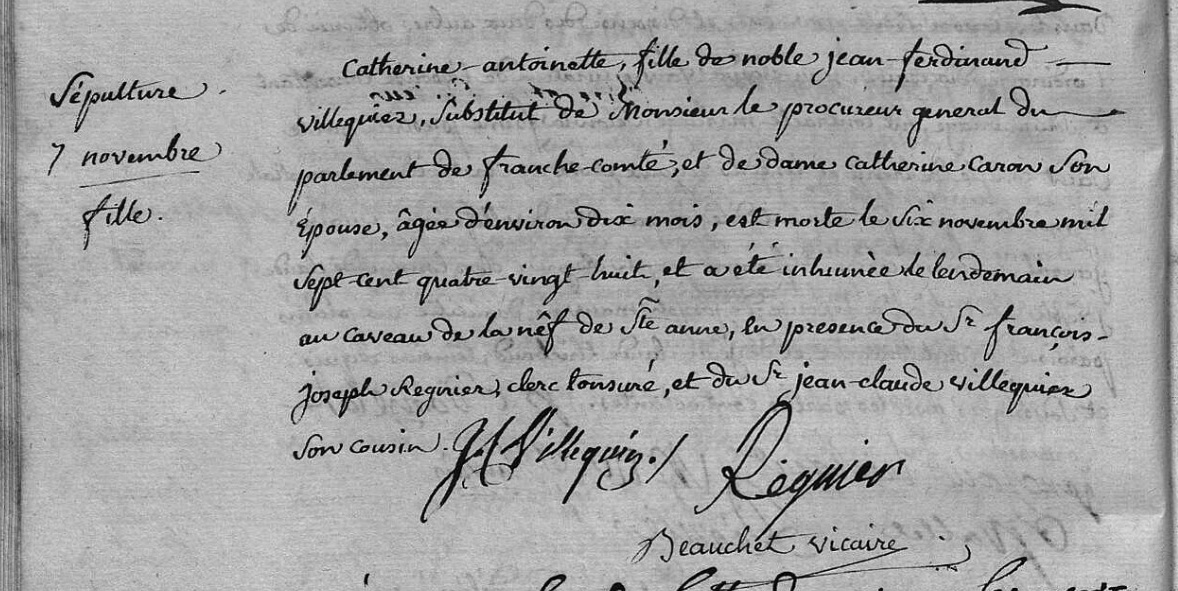 Sépulture.
7 novembre
fille.
Catherine-antoinette, fille de noble jean-ferdinand
villequiez, Substitut de Monsieur le procureur general du
parlement de franche-comté, et de dame catherine caron son
Épouse, âgée d'environ dix mois, est morte le six novembre mil
sept-cent quatre-vingt-huit, et a été inhumée le lendemain
au caveau de la nêf de Ste anne, En presence du Sr françois-
joseph Regnier, clerc tonsuré, et du Sr jean-claude villequiez
son cousin. J C Villequiez.
Régnier
Beauchet vicaire